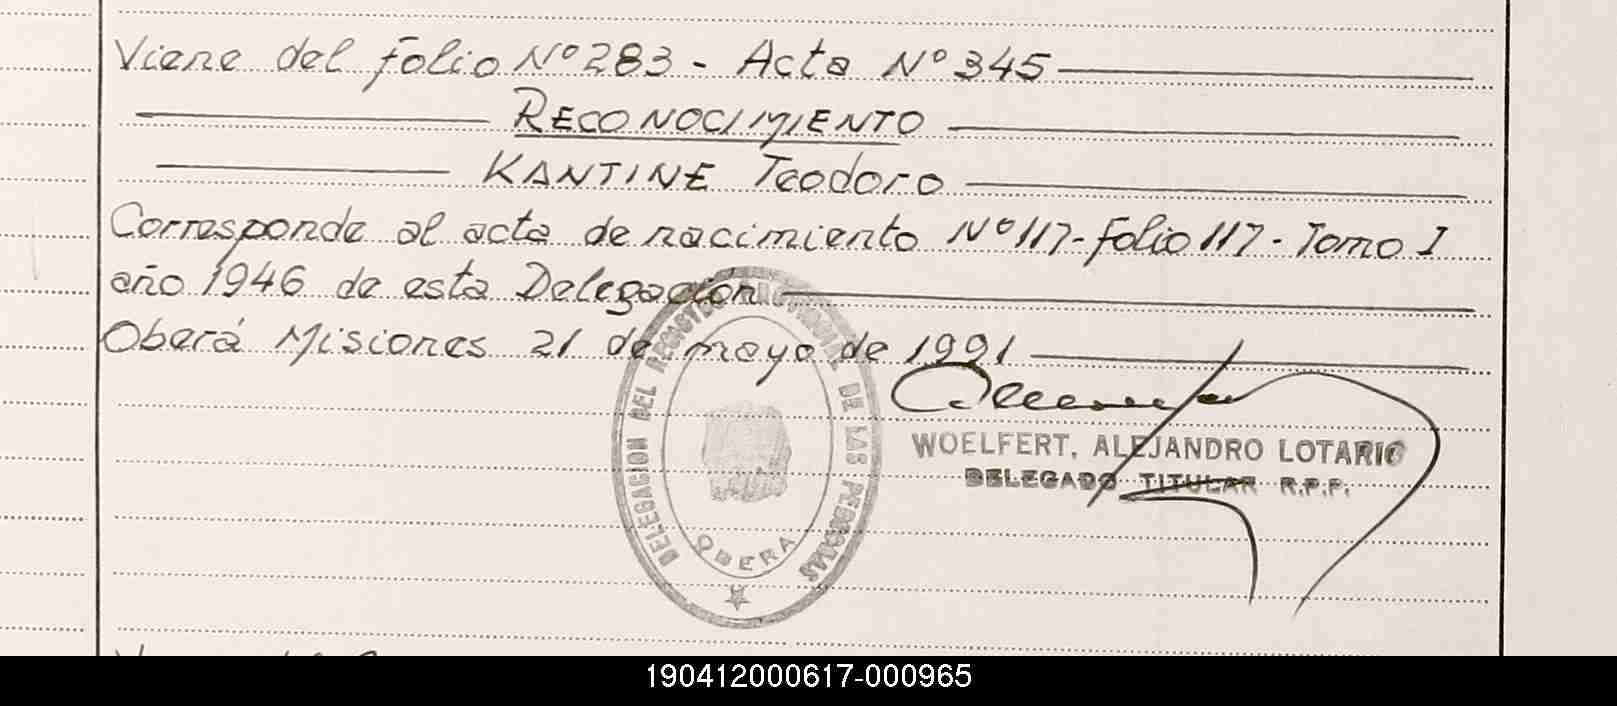 Viene del folio Nº 283 - Acta Nº 345
RECONOCIMIENTO
KANTINE Teodoro
Corresponde al acta de nacimiento Nº 117 - folio 117 - Tomo I
año 1946 de esta Delegación
Oberá Misiones 21 de mayo de 1991
DELEGACION DEL REGISTRO DE LAS PERSONAS
OBERA
WOELFERT, ALEJANDRO LOTARIO
DELEGADO TITULAR R.P.P.
190412000617-000965